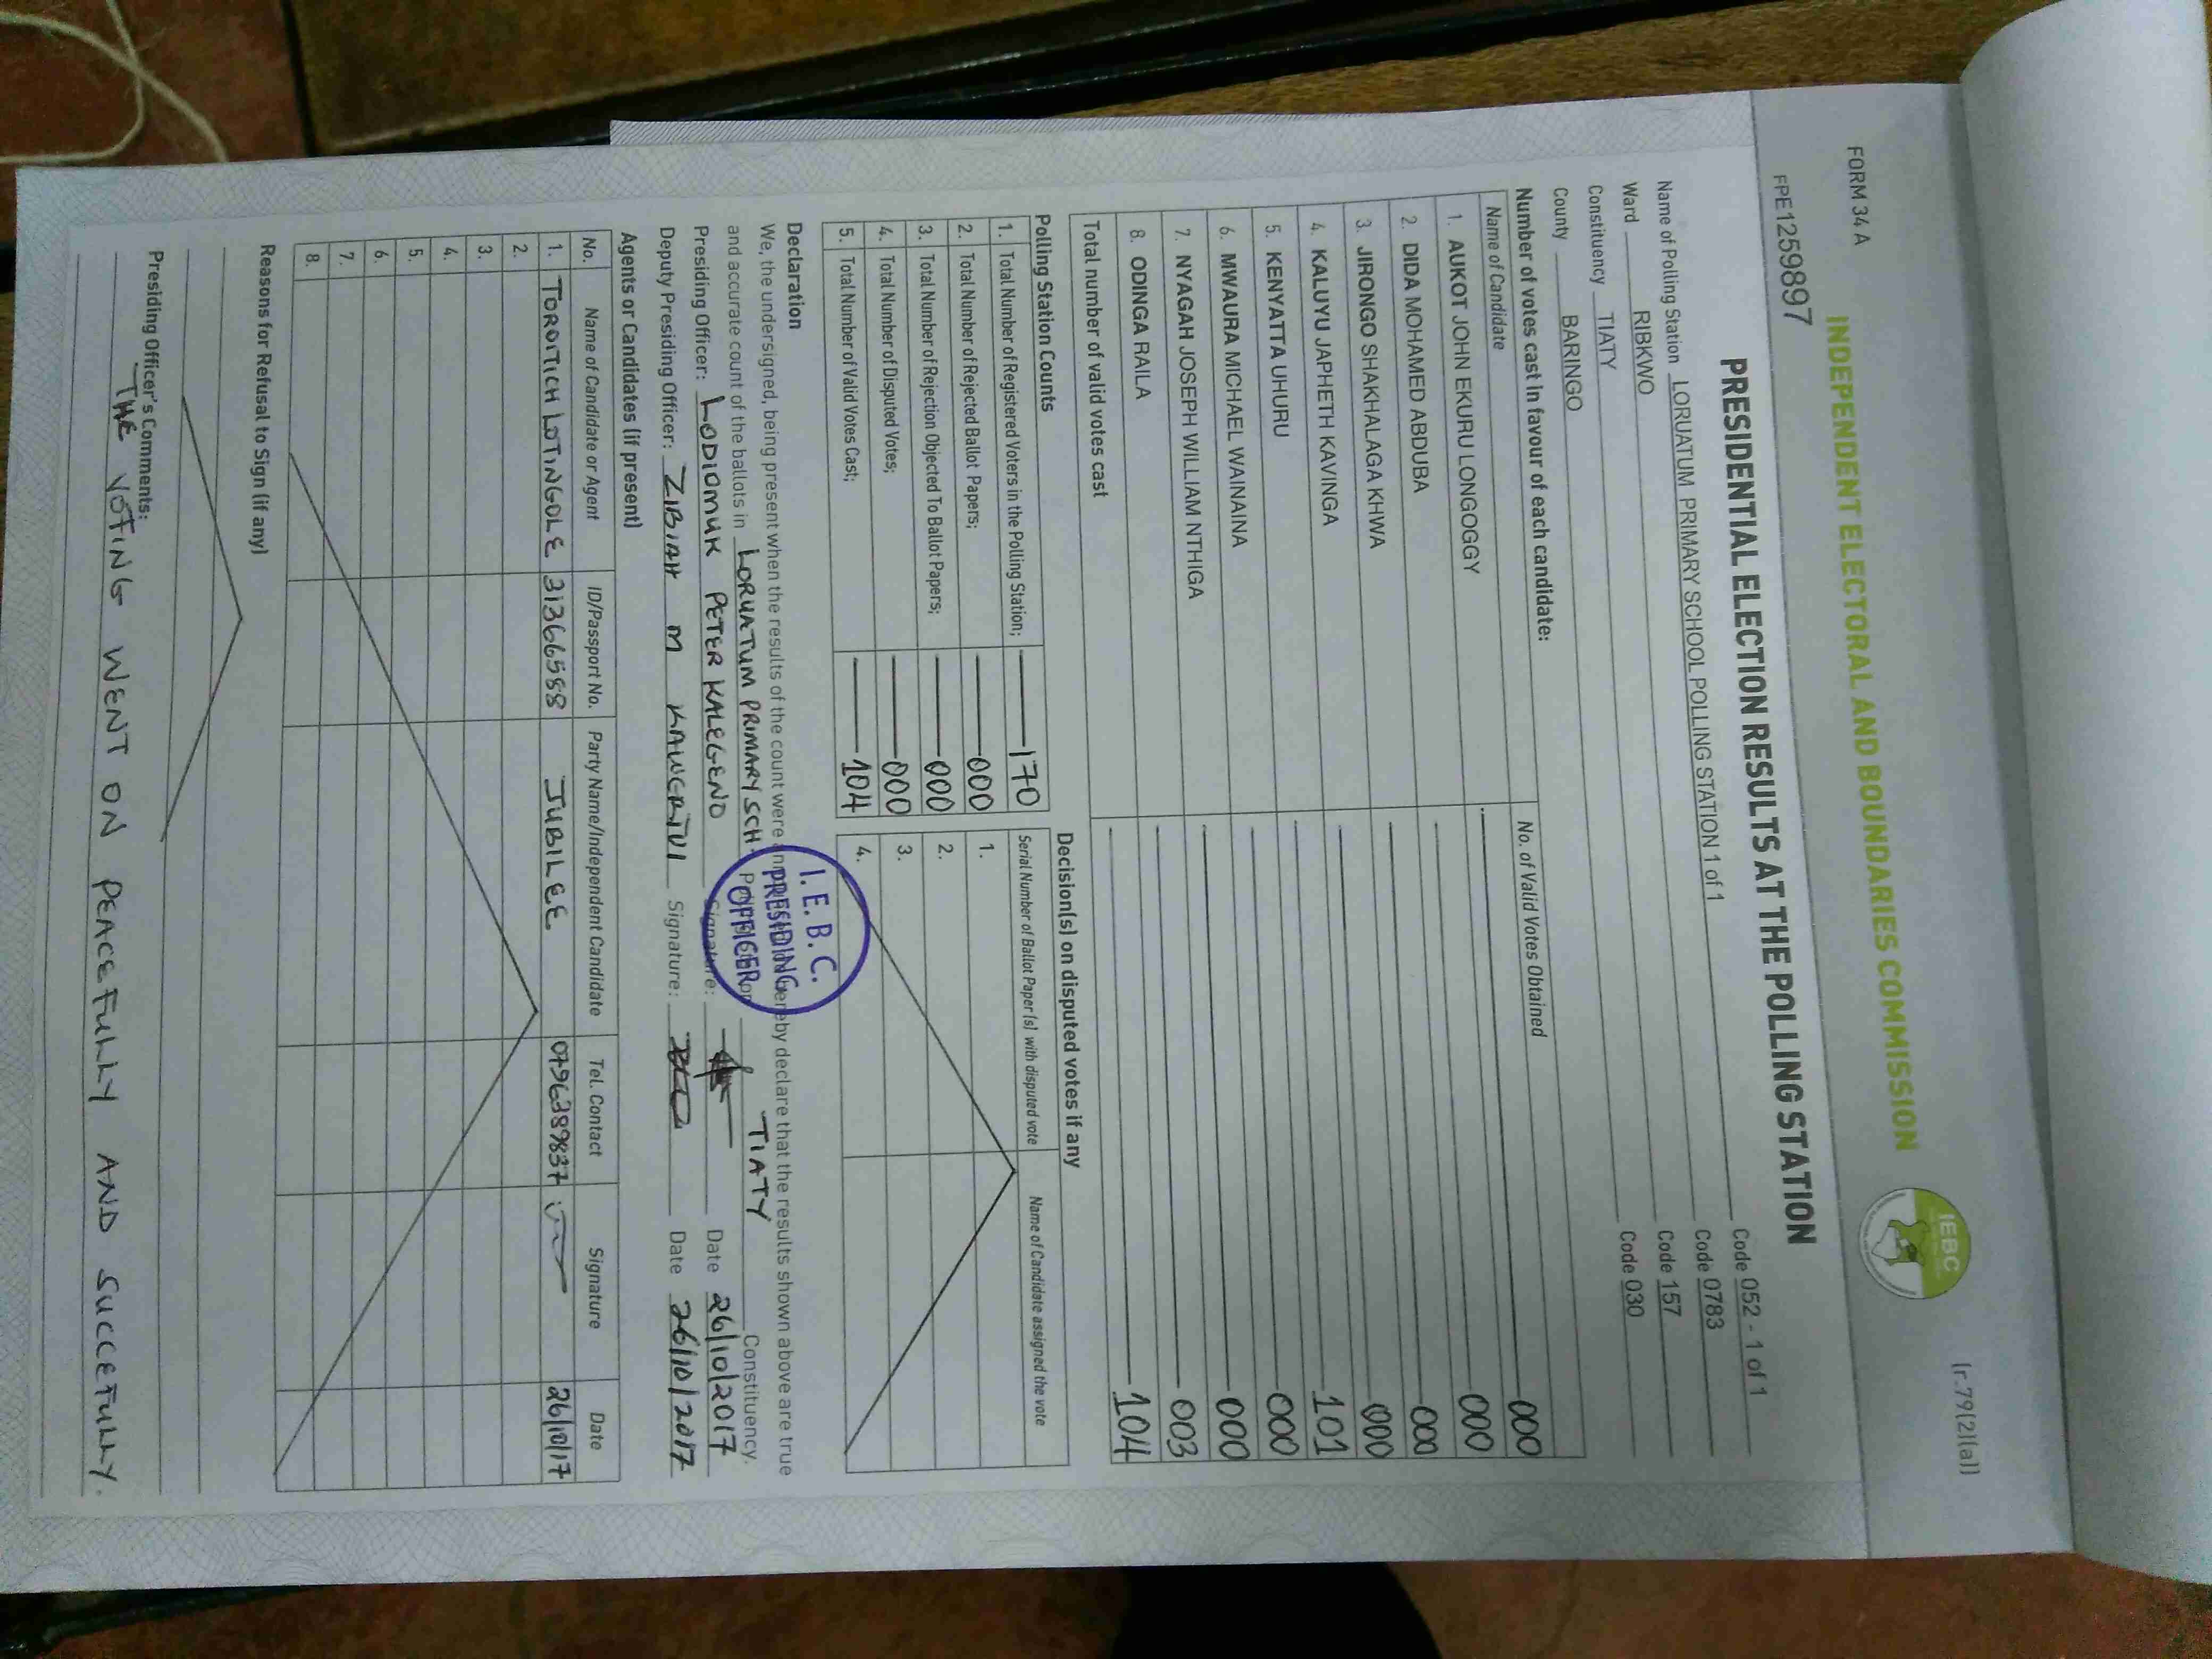 FORM 34 A
(r.79(2)(a))
INDEPENDENT ELECTORAL AND BOUNDARIES COMMISSION
IEBC
FPE1259897
PRESIDENTIAL ELECTION RESULTS AT THE POLLING STATION
Name of Polling Station LORUATUM PRIMARY SCHOOL POLLING STATION 1 of 1 Code 052 - 1 of 1
Ward RIBKWO Code 0783
Constituency TIATY Code 157
County BARINGO Code 030
Number of votes cast in favour of each candidate:
Name of Candidate No. of Valid Votes Obtained
1. AUKOT JOHN EKURU LONGOGGY 000
2. DIDA MOHAMED ABDUBA 000
3. JIRONGO SHAKHALAGA KHWA 000
4. KALUYU JAPHETH KAVINGA 000
5. KENYATTA UHURU 101
6. MWAURA MICHAEL WAINAINA 000
7. NYAGAH JOSEPH WILLIAM NTHIGA 000
8. ODINGA RAILA 003
Total number of valid votes cast 104
Polling Station Counts
1. Total Number of Registered Voters in the Polling Station; 170
2. Total Number of Rejected Ballot Papers; 000
3. Total Number of Rejection Objected To Ballot Papers; 000
4. Total Number of Disputed Votes; 000
5. Total Number of Valid Votes Cast; 104
Decision(s) on disputed votes if any
Serial Number of Ballot Paper (s) with disputed vote Name of Candidate assigned the vote
1.
2.
3.
4.
Declaration
We, the undersigned, being present when the results of the count were announced, hereby declare that the results shown above are true
and accurate count of the ballots in LORUATUM PRIMARY SCH. Polling Station TIATY Constituency.
Presiding Officer: LODIOMUK PETER KALEGENO Signature: Date 26/10/2017
Deputy Presiding Officer: ZIBIAH M Signature: Date 26/10/2017
I.E.B.C.
PRESIDING
OFFICER
Agents or Candidates (if present)
No. Name of Candidate or Agent ID/Passport No. Party Name/Independent Candidate Tel. Contact Signature Date
1. TOROITICH LOTINGOLE 31366588 JUBILEE 0796389837 26/10/17
2.
3.
4.
5.
6.
7.
8.
Reasons for Refusal to Sign (if any)
Presiding Officer's Comments:
THE VOTING WENT ON PEACEFULLY AND SUCCEFULLY.